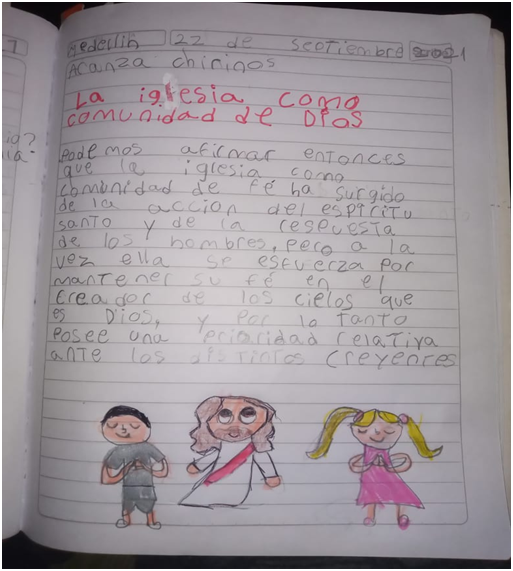 Medellin 22 de Septiembre 2021
Acanza chirinos
La iglesia como
comunidad de Dios
Podemos afirmar entonces
que la iglesia como
comunidad de fé ha surgido
de la accion del espiritu
santo y de la respuesta
de los hombres, pero a la
vez ella se esfuerza por
mantener su fé en el
Creador de los cielos que
es Dios, y por lo tanto
Posee una prioridad relativa
ante los distintos creyentes